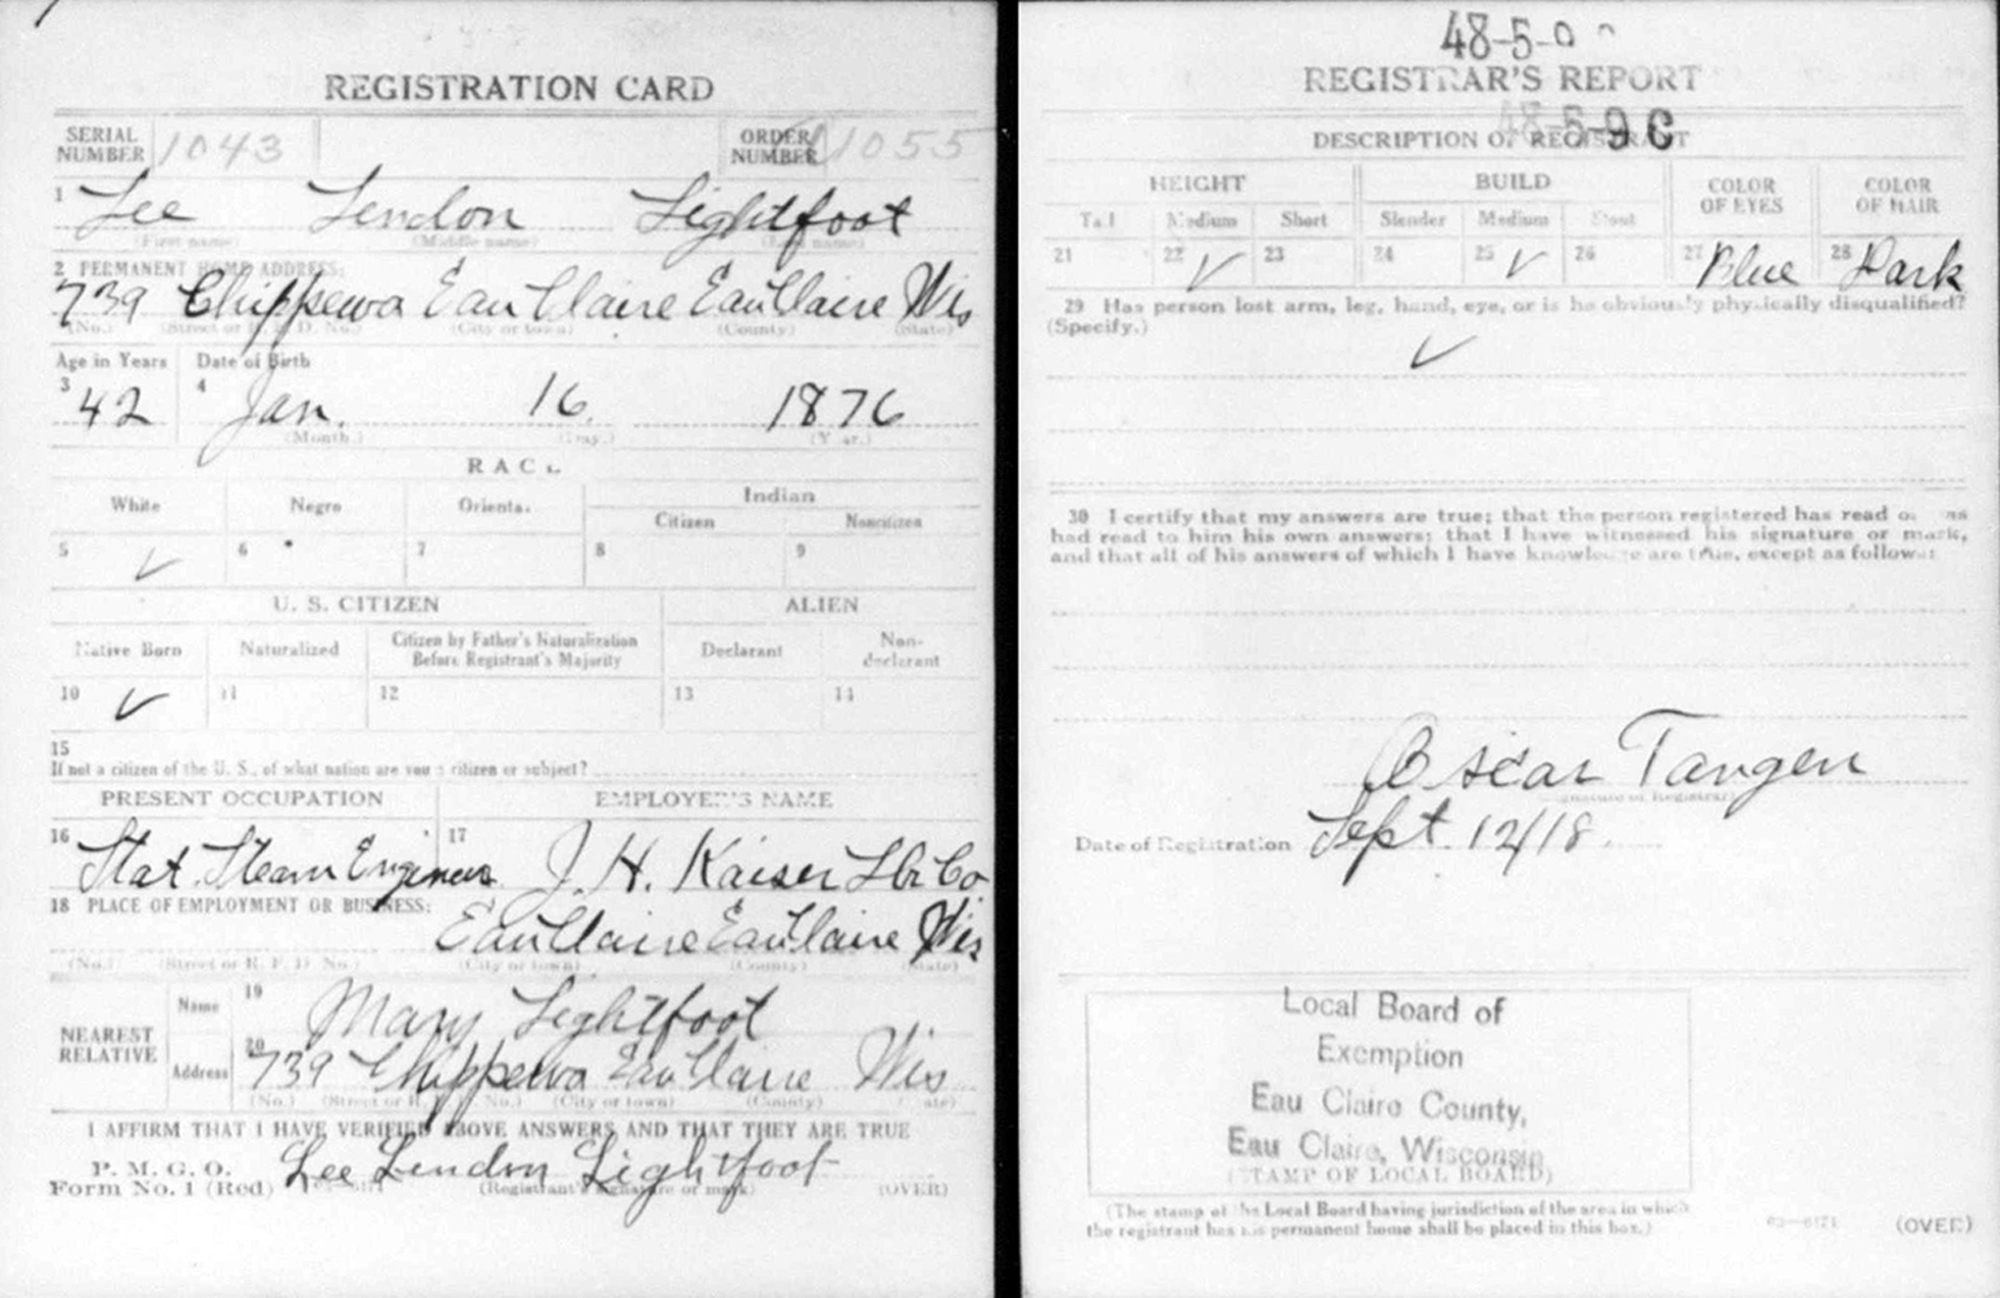 REGISTRATION CARD
SERIAL NUMBER 1043
ORDER NUMBER 1055
1 Lee Lendon Lightfoot
(First name) (Middle name) (Last name)
2 PERMANENT HOME ADDRESS:
739 Chippewa Eau Claire Eau Claire Wis
(No.) (Street or R. F. D. No.) (City or town) (County) (State)
Age in Years Date of Birth
3 42 4 Jan. 16. 1876
(Month.) (Day.) (Year.)
RACE
White Negro Oriental Indian
Citizen Noncitizen
5 ✓ 6 7 8 9
U. S. CITIZEN ALIEN
Native Born Naturalized Citizen by Father's Naturalization Before Registrant's Majority Declarant Non-declarant
10 ✓ 11 12 13 14
15
If not a citizen of the U. S., of what nation are you a citizen or subject?
PRESENT OCCUPATION EMPLOYER'S NAME
16 Stat. Steam Engineer 17 J. H. Kaiser Lbr Co
18 PLACE OF EMPLOYMENT OR BUSINESS:
Eau Claire Eau Claire Wis
(No.) (Street or R. F. D. No.) (City or town) (County) (State)
NEAREST RELATIVE
Name 19 Mary Lightfoot
Address 20 739 Chippewa Eau Claire Wis
(No.) (Street or R. F. D. No.) (City or town) (County) (State)
I AFFIRM THAT I HAVE VERIFIED ABOVE ANSWERS AND THAT THEY ARE TRUE
P. M. G. O.
Form No. 1 (Red) Lee Lendon Lightfoot
(Registrant's signature or mark) (OVER)
48-5-
REGISTRAR'S REPORT
48-5-9 C
DESCRIPTION OF REGISTRANT
HEIGHT BUILD COLOR OF EYES COLOR OF HAIR
Tall Medium Short Slender Medium Stout
21 22 ✓ 23 24 25 ✓ 26 27 Blue 28 Dark
29 Has person lost arm, leg, hand, eye, or is he obviously physically disqualified?
(Specify.)
✓
30 I certify that my answers are true; that the person registered has read or has
had read to him his own answers; that I have witnessed his signature or mark,
and that all of his answers of which I have knowledge are true, except as follows:
Oscar Tangen
(Signature of Registrar)
Date of Registration Sept. 12/18.
Local Board of
Exemption
Eau Claire County,
Eau Claire, Wisconsin
(STAMP OF LOCAL BOARD)
(The stamp of the Local Board having jurisdiction of the area in which
the registrant has his permanent home shall be placed in this box.)
03—6171 (OVER)